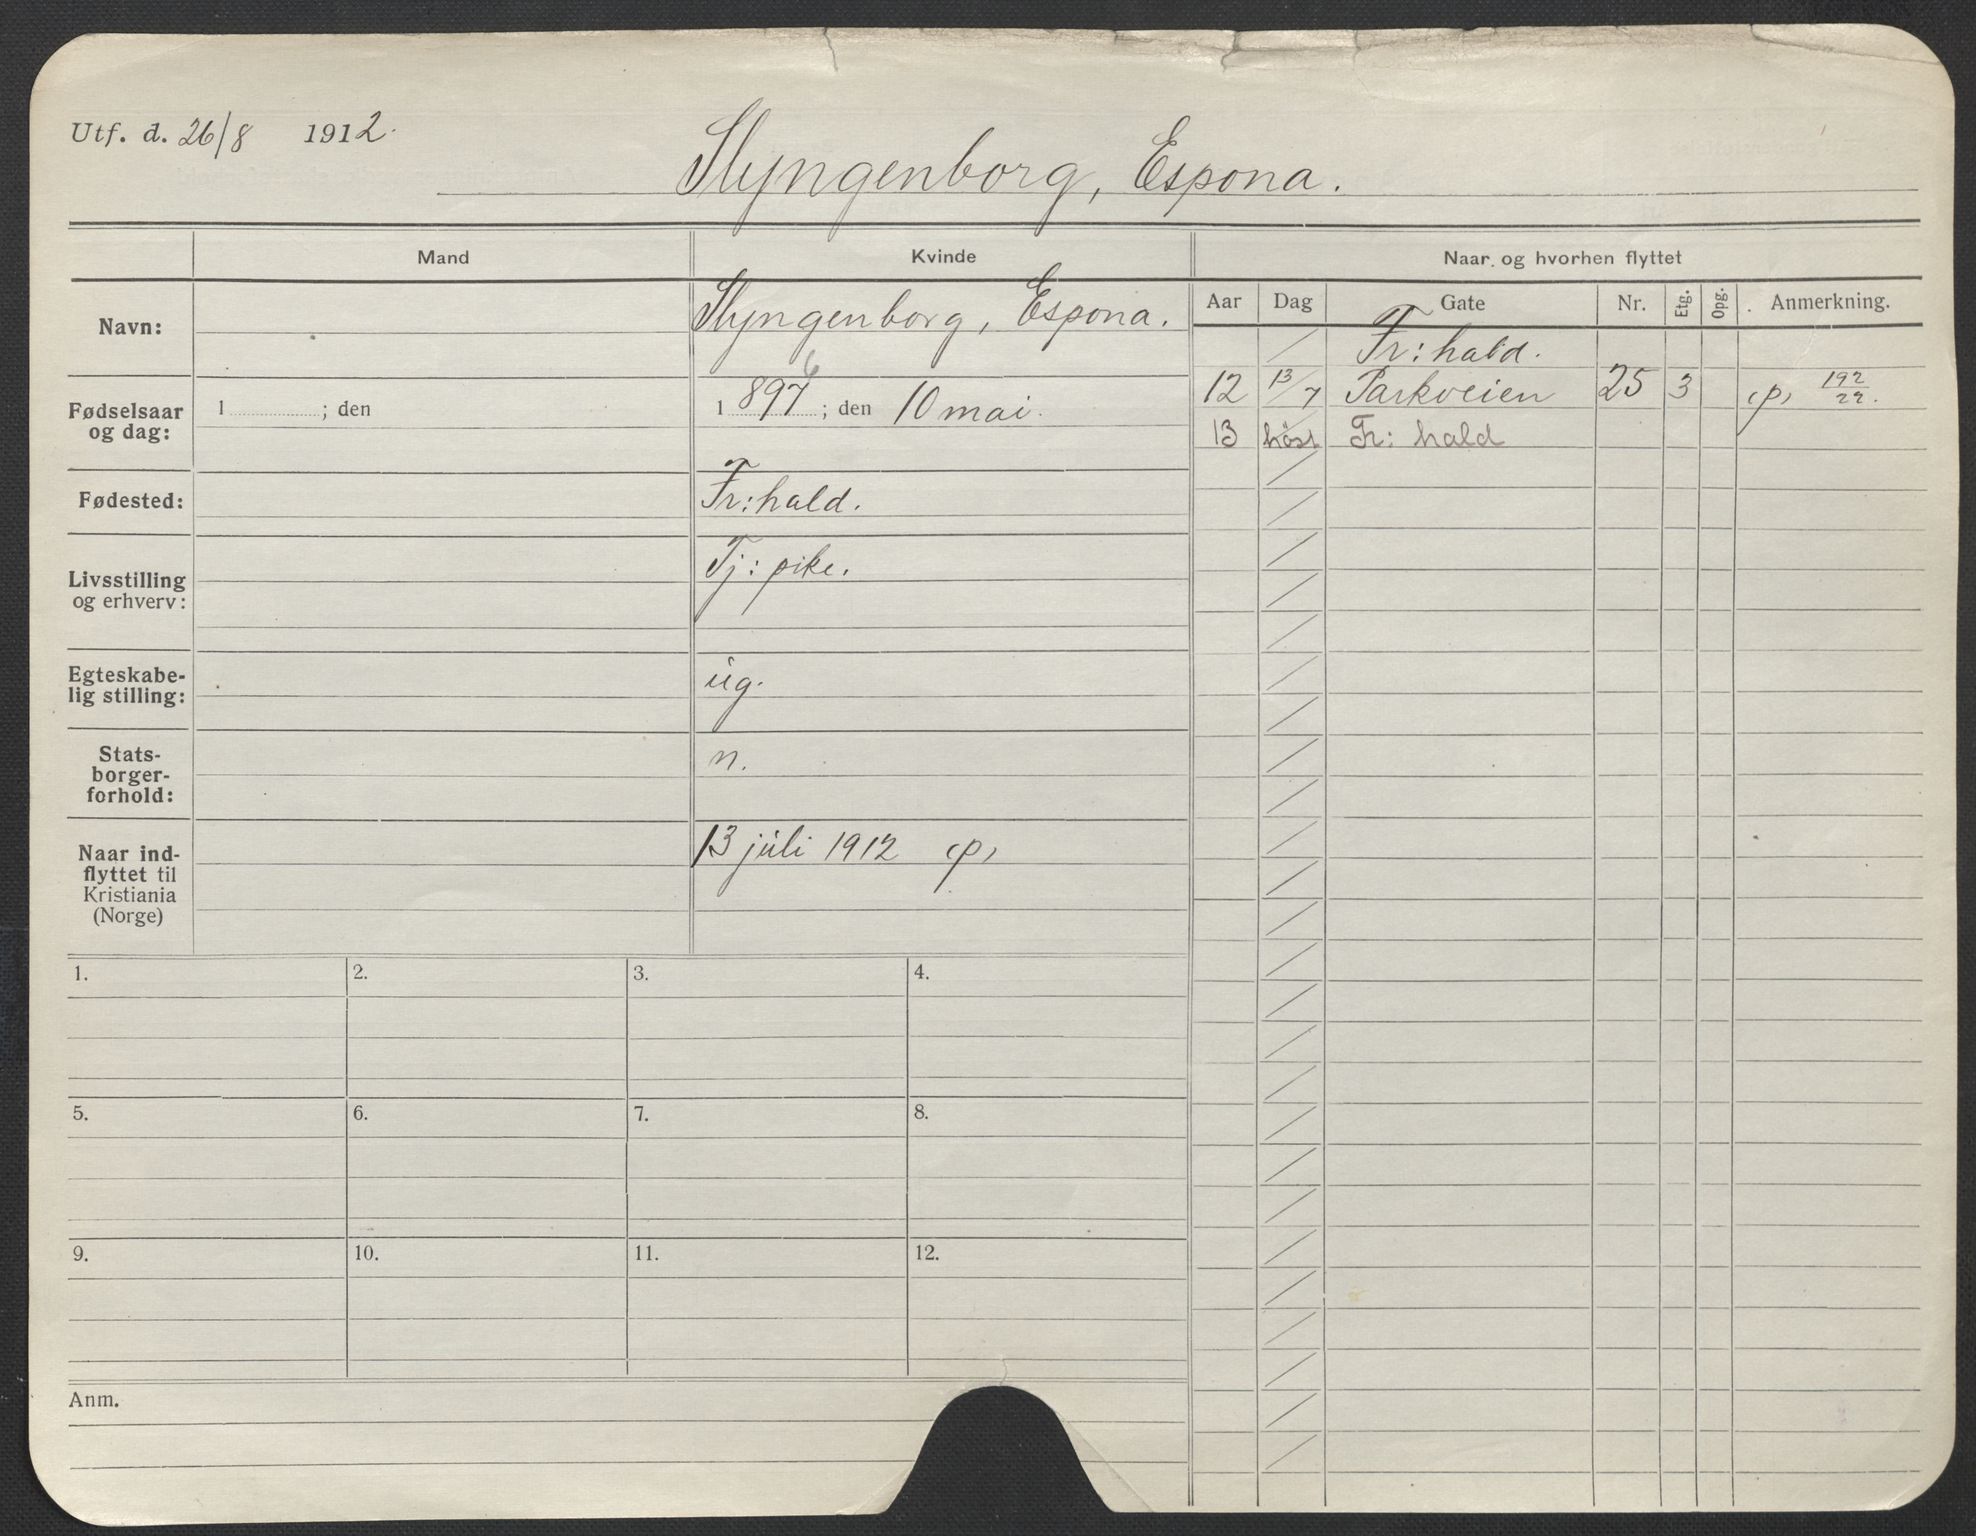 Utf. d. 26/8 1912.
Slyngenborg, Espona.
Mand
Kvinde
Naar og hvorhen flyttet
Navn:
Slyngenborg, Espona.
Fødselsaar
og dag:
1 ; den
1 897 6 ; den 10 mai.
Fødested:
Fr:hald.
Livsstilling
og erhverv:
Tj: pike.
Egteskabe-
lig stilling:
ug.
Stats-
borger-
forhold:
n.
Naar ind-
flyttet til
Kristiania
(Norge)
13 juli 1912 (p)
Aar Dag Gate Nr. Etg. Opg. Anmerkning.
Fr: hald.
12 13/7 Parkveien 25 3 (p) 192/22.
13 høst Fr: hald
1. 2. 3. 4.
5. 6. 7. 8.
9. 10. 11. 12.
Anm.